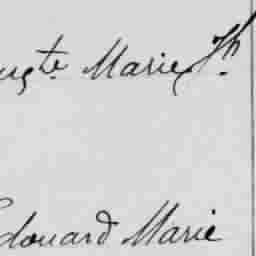 ugte Marie Th.
Edouard Marie